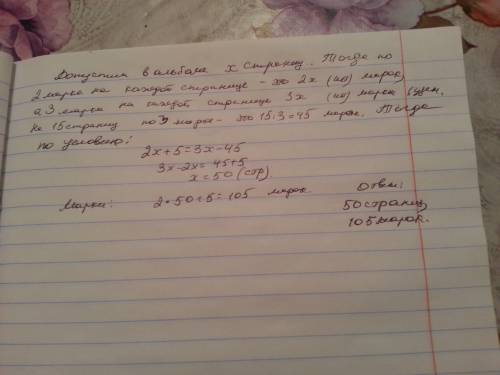 Допустим в альбоме x страниц. Тогда по
2 марке на каждой странице - это 2x (шт) марок,
а 3 марки на каждой странице 3x (шт) марок
На 15 страниц по 3 марки - это 15·3=45 марок. Тогда
по условию:
2x+5=3x-45
3x-2x=45+5
x=50 (стр)
Марки: 2·50+5=105 марок.
Ответ:
50 страниц
105 марок.